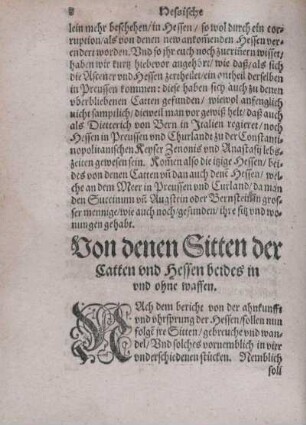 8 Hessische
lein mehr beschehen/ in Hessen/ so wol durch ein cor-
ruption/ als von denen newankom̃enen Hessen ver-
endert worden. Vnd so jhr euch noch zuerin̄ern wisset/
haben wir kurtz hiebevor angehört/ wie daß/ als sich
die Ascener vnd Hessen zertheilet/ ein ontheil derselben
in Preussen kommen: diese haben sich auch zu denen
vberbliebenen Catten gefunden/ wiewol anfenglich
nicht samptlich/ dieweil man vor gewiß helt/ daß auch
als Dietterich von Bern in Italien regieret/ noch
Hessen in Preussen vnd Churlandt zu der Constanti-
nopolitanischen Keyser Zenonis vnd Anastasij lebs-
zeiten gewesen sein. Kom̄en also die itzige Hessen/ bei-
des von denen Catten vñ dan auch denē Hessen/ wel-
che an dem Meer in Preussen vnd Curland/ da man
den Succinum vñ Augstein oder Bernstein in gros-
ser mennige/ wie auch noch/ gefunden/ ihre sitz vnd wo-
nungen gehabt.
Von denen Sitten der
Catten vnd Hessen beides in
vnd ohne waffen.
NAch dem bericht von der ahnkunfft
vnd vhrsprung der Hessen/ sollen nun
folgē jre Sitten/ gebreuche vnd wan-
del/ Vnd solches vornemblich in vier
vnderschiedenen stücken. Nemblich
soll